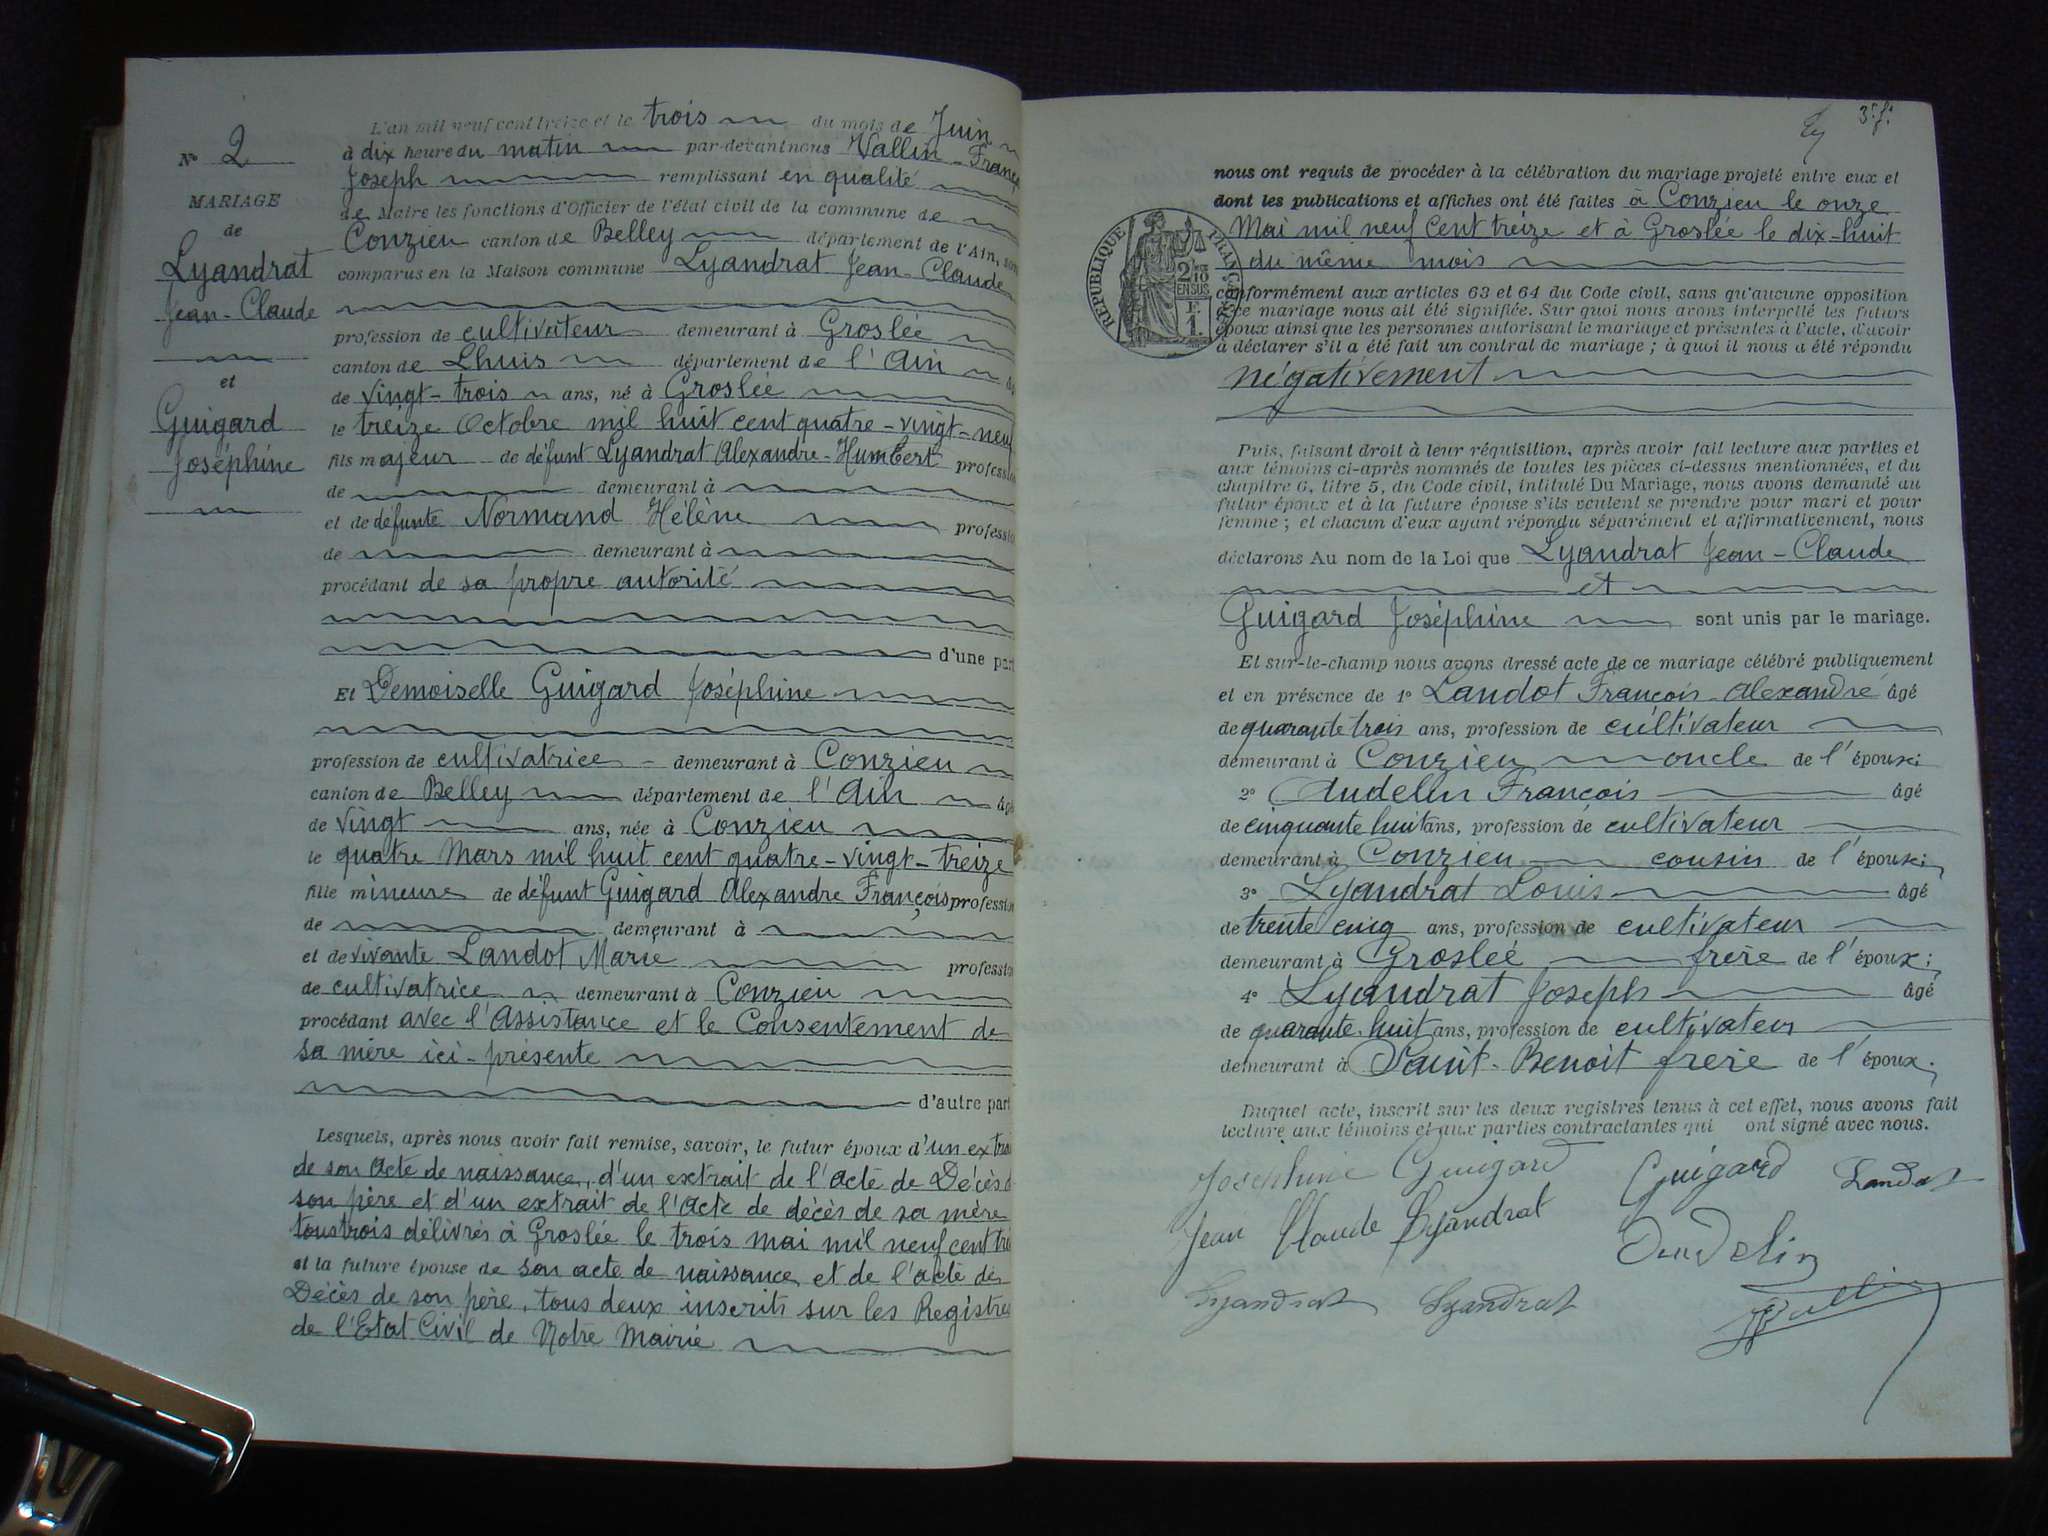 N° 2
MARIAGE
de
Lyandrat
Jean-Claude
et
Guigard
Joséphine
L'an mil neuf cent treize et le trois du mois de Juin
à dix heure du matin par-devant nous Vallin François
Joseph remplissant en qualité
de Maire les fonctions d'Officier de l'état civil de la commune de
Conzieu canton de Belley département de l'Ain, sont
comparus en la Maison commune Lyandrat Jean-Claude
profession de cultivateur demeurant à Groslée
canton de Lhuis département de l'Ain
de vingt-trois ans, né à Groslée
le treize Octobre mil huit cent quatre-vingt-neuf
fils majeur de défunt Lyandrat Alexandre-Humbert profession
de demeurant à
et de défunte Normand Hélène profession
de demeurant à
procédant de sa propre autorité
d'une part
Et Demoiselle Guigard Joséphine
profession de cultivatrice demeurant à Conzieu
canton de Belley département de l'Ain âgée
de vingt ans, née à Conzieu
le quatre Mars mil huit cent quatre-vingt-treize
fille mineure de défunt Guigard Alexandre François profession
de demeurant à
et de vivante Landot Marie profession
de cultivatrice demeurant à Conzieu
procédant avec l'Assistance et le Consentement de
sa mère ici-présente
d'autre part
Lesquels, après nous avoir fait remise, savoir, le futur époux d'un extrait
de son Acte de naissance, d'un extrait de l'acte de Décès de
son père et d'un extrait de l'Acte de décès de sa mère
tous trois délivrés à Groslée le trois mai mil neuf cent treize
et la future épouse de son acte de naissance et de l'acte de
Décès de son père, tous deux inscrits sur les Registres
de l'Etat Civil de Notre Mairie
3e f.
nous ont requis de procéder à la célébration du mariage projeté entre eux et
dont les publications et affiches ont été faites à Conzieu le onze
Mai mil neuf cent treize et à Groslée le dix-huit
du même mois
RÉPUBLIQUE FRANÇAISE
2/10
EN SUS
1 F.
conformément aux articles 63 et 64 du Code civil, sans qu'aucune opposition
à ce mariage nous ait été signifiée. Sur quoi nous avons interpellé les futurs
époux ainsi que les personnes autorisant le mariage et présentes à l'acte, d'avoir
à déclarer s'il a été fait un contrat de mariage ; à quoi il nous a été répondu
négativement
Puis, faisant droit à leur réquisition, après avoir fait lecture aux parties et
aux témoins ci-après nommés de toutes les pièces ci-dessus mentionnées, et du
chapitre 6, titre 5, du Code civil, intitulé Du Mariage, nous avons demandé au
futur époux et à la future épouse s'ils veulent se prendre pour mari et pour
femme ; et chacun d'eux ayant répondu séparément et affirmativement, nous
déclarons Au nom de la Loi que Lyandrat Jean-Claude
et
Guigard Joséphine sont unis par le mariage.
Et sur-le-champ nous avons dressé acte de ce mariage célébré publiquement
et en présence de 1° Landot François Alexandre âgé
de quarante trois ans, profession de cultivateur
demeurant à Conzieu oncle de l'épouse;
2° Audelin François âgé
de cinquante huit ans, profession de cultivateur
demeurant à Conzieu cousin de l'épouse;
3° Lyandrat Louis âgé
de trente cinq ans, profession de cultivateur
demeurant à Groslée frère de l'époux;
4° Lyandrat Joseph âgé
de quarante-huit ans, profession de cultivateur
demeurant à Saint-Benoit frère de l'époux.
Duquel acte, inscrit sur les deux registres tenus à cet effet, nous avons fait
lecture aux témoins et aux parties contractantes qui ont signé avec nous.
Joséphine Guigard Guigard Landot
Jean Claude Lyandrat Audelin
Lyandrat Lyandrat Vallin